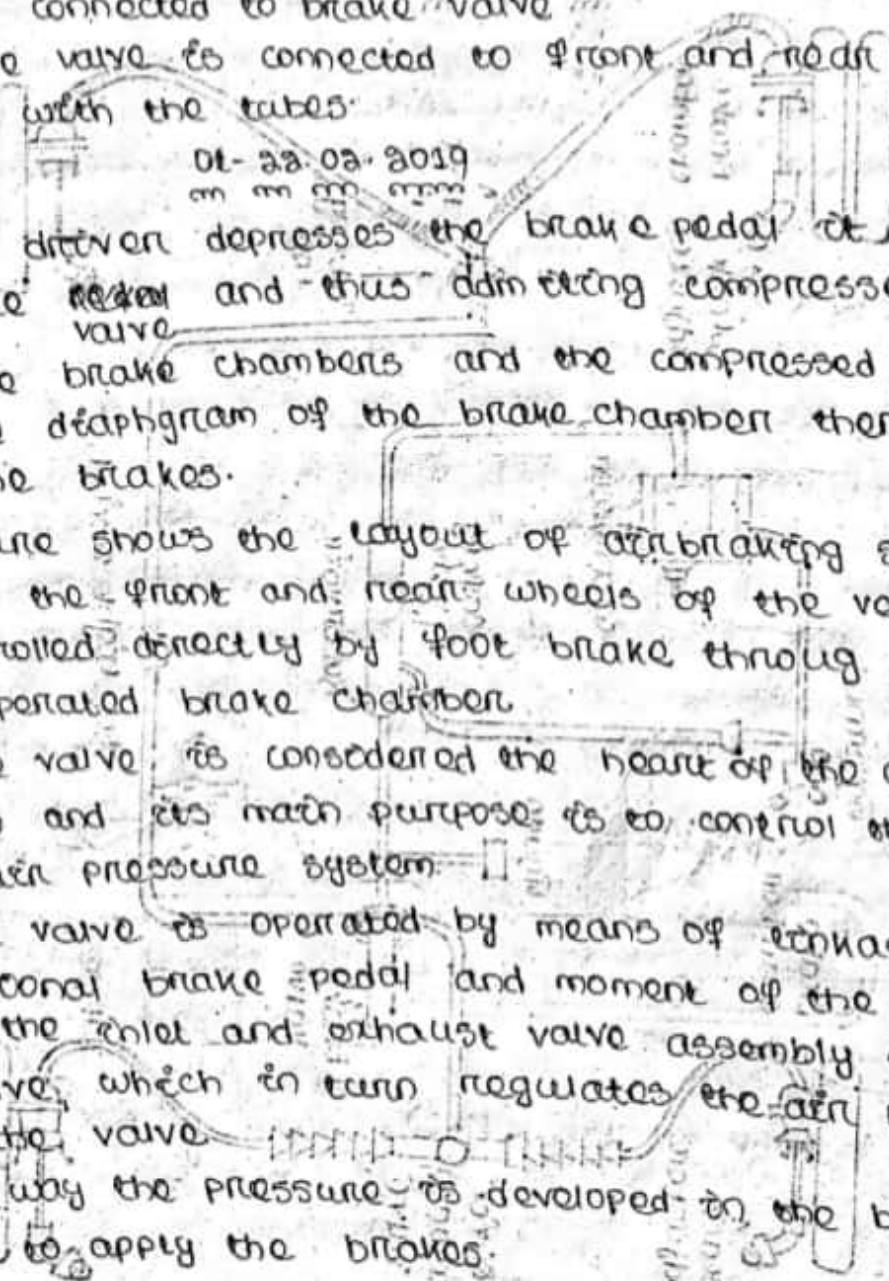 connected to brake valve
e valve is connected to front and rear
with the tubes.
Dt- 22.02.2019
driver depresses the brake pedal it
e and thus admitting compresse
valve
e brake chambers and the compressed
diaphgram of the brake chamber ther
he brakes.
ure shows the layout of airbraking s
the front and rear wheels of the ve
rolled directly by foot brake throug
perated brake chamber.
e valve is considered the heart of the
and its main purpose is to control
air pressure system.
valve is operated by means of linka
ional brake pedal and moment of the
the inlet and exhaust valve assembly
ve, which in turn regulates the air
the valve
way the pressure is developed in the b
to apply the brakes.